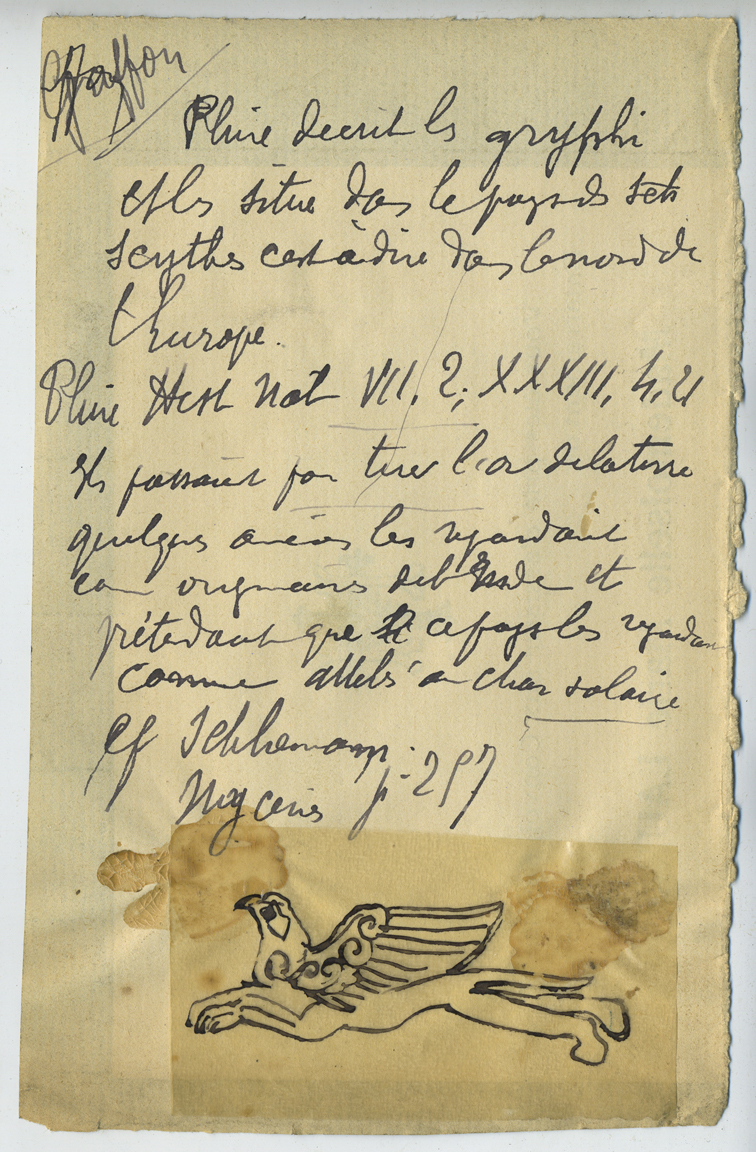 Griffon
Pline decrit les gryphi
et les situe dans le pays des
scythes cest à dire dans le nord de
l'Europe.
Pline Hist Nat VII, 2; XXXIII, 4, 21
Ils passaient pour tirer l'or de la terre
quelques anciens les regardaient
com originaires de l'Inde et
prétendant que ce pays les regardait
comme attelés au char solaire
cf Schliemann
Mycènes p. 257